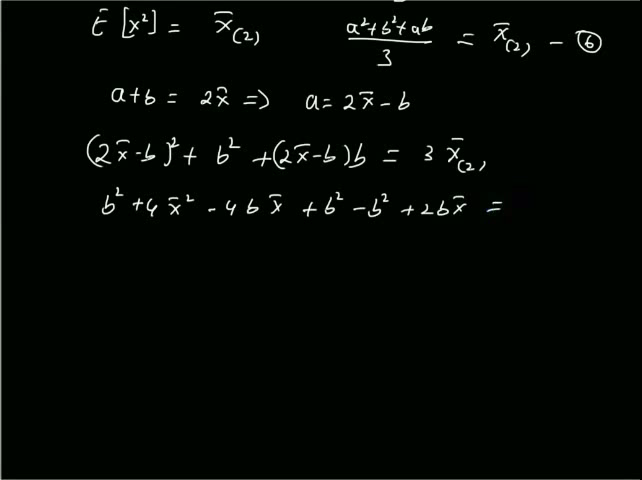 E [x²] = x̄₍₂₎   (a²+b²+ab)/3 = x̄₍₂₎ - ⑥
a+b = 2x̄ => a = 2x̄ - b
(2x̄-b)² + b² + (2x̄-b)b = 3 x̄₍₂₎
b² + 4x̄² - 4bx̄ + b² - b² + 2bx̄ =